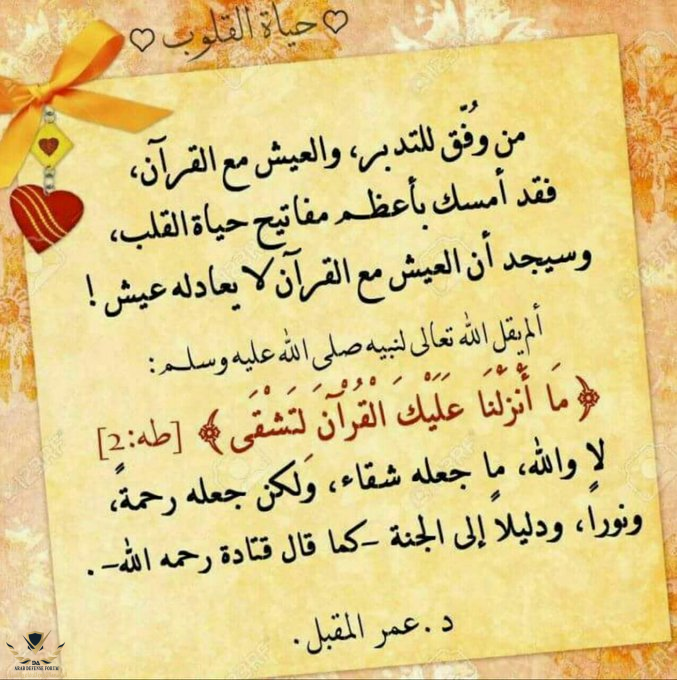 ♡ حياة القلوب ♡
من وُفّق للتدبر، والعيش مع القرآن،
فقد أمسك بأعظم مفاتيح حياة القلب،
وسيجد أن العيش مع القرآن لا يعادله عيش !
ألم يقل الله تعالى لنبيه صلى الله عليه وسلم:
﴿مَا أَنْزَلْنَا عَلَيْكَ الْقُرْآنَ لِتَشْقَى﴾ [طه:2]
لا والله، ما جعله شقاء، ولكن جعله رحمةً،
ونوراً، ودليلاً إلى الجنة -كما قال قتادة رحمه الله-.
د. عمر المقبل.
DA
ARAB DEFENSE FORUM
123RF